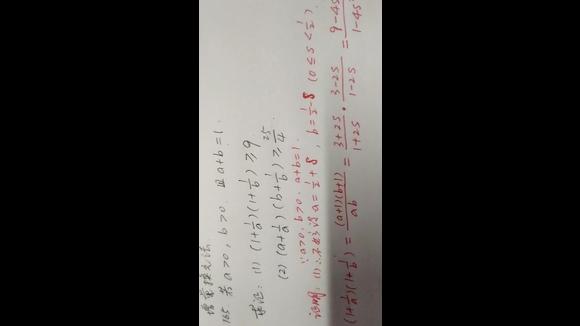 增量换元法
165 若 a>0, b>0. 且 a+b=1.
求证: (1) (1+1/a)(1+1/b)≥9
(2) (a+1/a)(b+1/b)≥25/4
∵a>0, b>0. a+b=1.
证明: (1) ∴不妨设 a=1/2+s, b=1/2-s (0≤s<1/2).
(1+1/a)(1+1/b)=(a+1)(b+1)/ab=3+2s/1+2s·3-2s/1-2s=9-4s/1-4s